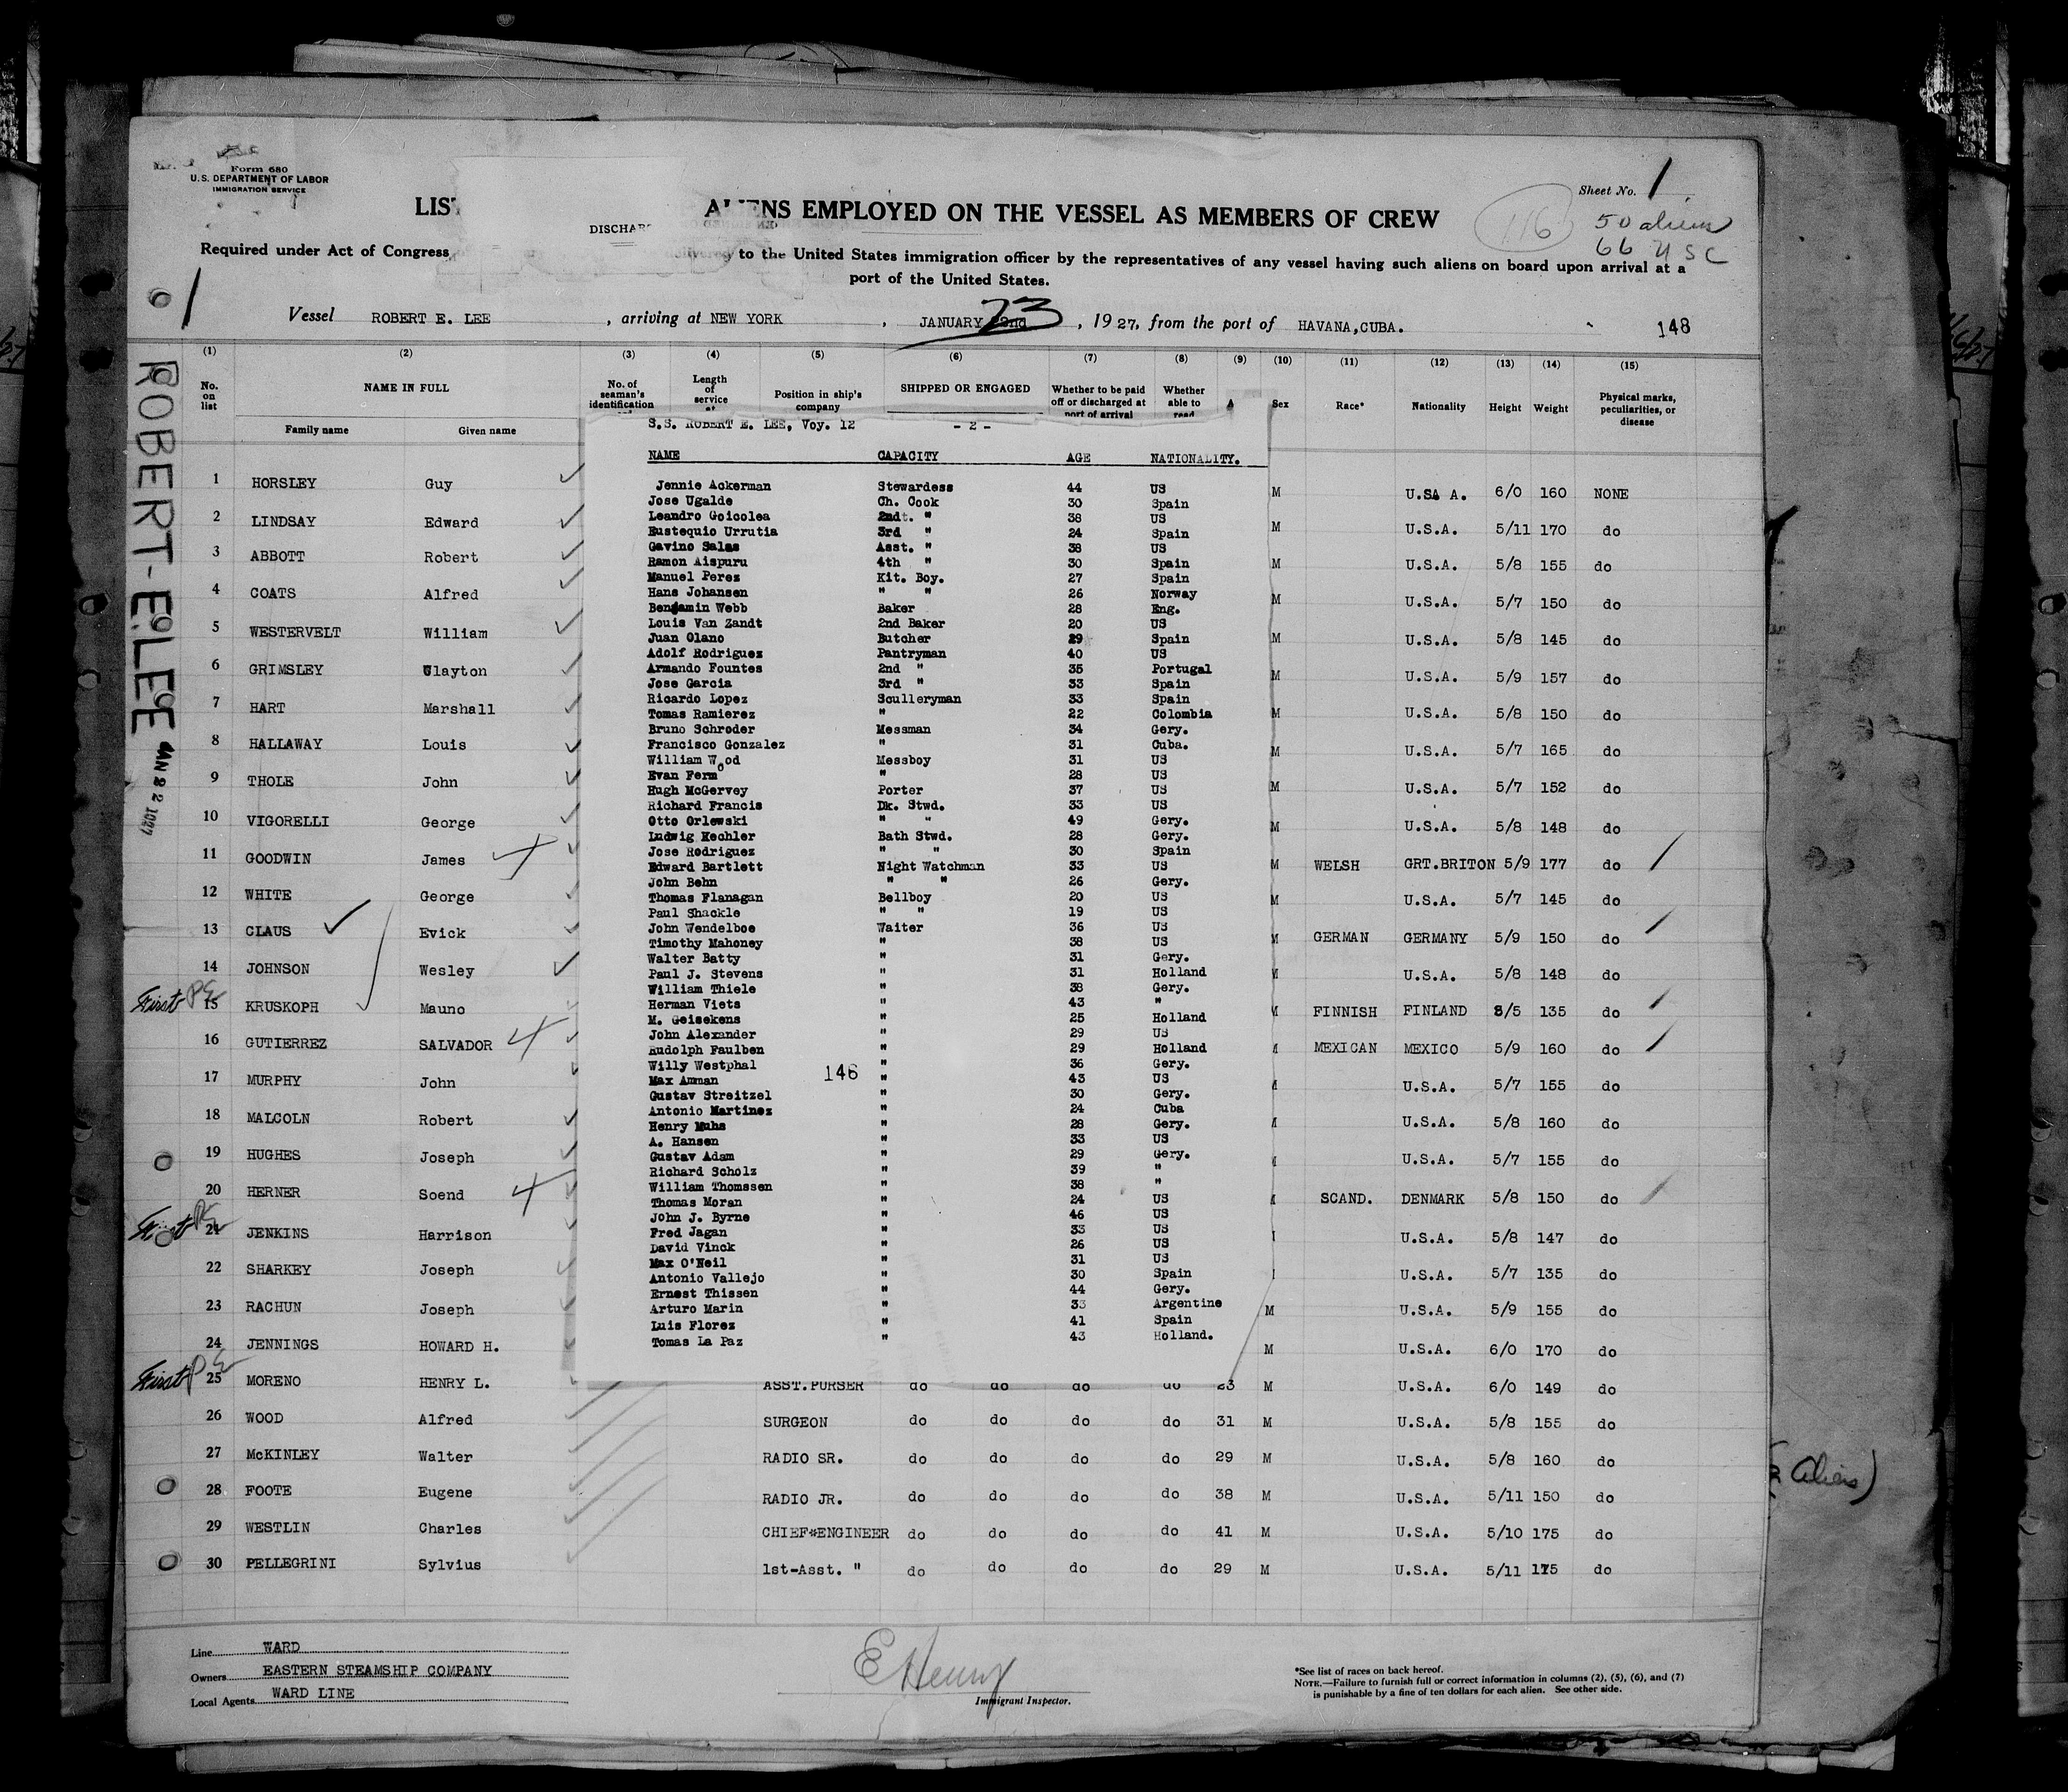 Form 680
U.S. DEPARTMENT OF LABOR
IMMIGRATION SERVICE
Sheet No. 1
116
50 aliens
66 USC
LIST ALIENS EMPLOYED ON THE VESSEL AS MEMBERS OF CREW
DISCHAR
Required under Act of Congress delivered to the United States immigration officer by the representatives of any vessel having such aliens on board upon arrival at a
port of the United States.
1
Vessel ROBERT E. LEE, arriving at NEW YORK, JANUARY 22nd 23, 1927, from the port of HAVANA,CUBA.
148
ROBERT-E-LEE
JAN 22 1927
(1) (2) (3) (4) (5) (6) (7) (8) (9) (10) (11) (12) (13) (14) (15)
No. on list NAME IN FULL No. of seaman's identification Length of service at Position in ship's company SHIPPED OR ENGAGED Whether to be paid off or discharged at port of arrival Whether able to read A Sex Race* Nationality Height Weight Physical marks, peculiarities, or disease
Family name Given name
1 HORSLEY Guy M U.SA A. 6/0 160 NONE
2 LINDSAY Edward M U.S.A. 5/11 170 do
3 ABBOTT Robert M U.S.A. 5/8 155 do
4 COATS Alfred M U.S.A. 5/7 150 do
5 WESTERVELT William M U.S.A. 5/8 145 do
6 GRIMSLEY Clayton M U.S.A. 5/9 157 do
7 HART Marshall M U.S.A. 5/8 150 do
8 HALLAWAY Louis M U.S.A. 5/7 165 do
9 THOLE John M U.S.A. 5/7 152 do
10 VIGORELLI George M U.S.A. 5/8 148 do
11 GOODWIN James M WELSH GRT.BRITON 5/9 177 do
12 WHITE George M U.S.A. 5/7 145 do
13 CLAUS Evick M GERMAN GERMANY 5/9 150 do
14 JOHNSON Wesley M U.S.A. 5/8 148 do
First PE 15 KRUSKOPH Mauno M FINNISH FINLAND 5/5 135 do
16 GUTIERREZ SALVADOR M MEXICAN MEXICO 5/9 160 do
17 MURPHY John M U.S.A. 5/7 155 do
18 MALCOLN Robert M U.S.A. 5/8 160 do
19 HUGHES Joseph M U.S.A. 5/7 155 do
20 HERNER Soend M SCAND. DENMARK 5/8 150 do
First PE 21 JENKINS Harrison U.S.A. 5/8 147 do
22 SHARKEY Joseph U.S.A. 5/7 135 do
23 RACHUN Joseph M U.S.A. 5/9 155 do
24 JENNINGS HOWARD H. M U.S.A. 6/0 170 do
First PE 25 MORENO HENRY L. ASST.PURSER do do do do 23 M U.S.A. 6/0 149 do
26 WOOD Alfred SURGEON do do do do 31 M U.S.A. 5/8 155 do
27 McKINLEY Walter RADIO SR. do do do do 29 M U.S.A. 5/8 160 do
28 FOOTE Eugene RADIO JR. do do do do 38 M U.S.A. 5/11 150 do
29 WESTLIN Charles CHIEF*ENGINEER do do do do 41 M U.S.A. 5/10 175 do
30 PELLEGRINI Sylvius 1st-Asst. " do do do do 29 M U.S.A. 5/11 175 do
S.S. ROBERT E. LEE, Voy. 12 - 2 -
NAME CAPACITY AGE NATIONALITY.
Jennie Ackerman Stewardess 44 US
Jose Ugalde Ch. Cook 30 Spain
Leandro Goicolea 2nd. " 38 US
Eustequio Urrutia 3rd " 24 Spain
Gavino Salas Asst. " 38 US
Ramon Aispuru 4th " 30 Spain
Manuel Perez Kit. Boy. 27 Spain
Hans Johansen " " 26 Norway
Benjamin Webb Baker 28 Eng.
Louis Van Zandt 2nd Baker 20 US
Juan Olano Butcher 29 Spain
Adolf Rodriguez Pantryman 40 US
Armando Fountes 2nd " 35 Portugal
Jose Garcia 3rd " 33 Spain
Ricardo Lopez Sculleryman 33 Spain
Tomas Ramierez " 22 Colombia
Bruno Schroder Messman 34 Gery.
Francisco Gonzalez " 31 Cuba.
William Wood Messboy 31 US
Evan Ferm " 28 US
Hugh McGervey Porter 37 US
Richard Francis Dk. Stwd. 33 US
Otto Orlewski " " 49 Gery.
Ludwig Kechler Bath Stwd. 28 Gery.
Jose Rodriguez " " 30 Spain
Edward Bartlett Night Watchman 33 US
John Behn " " 26 Gery.
Thomas Flanagan Bellboy 20 US
Paul Shackle " " 19 US
John Wendelboe Waiter 36 US
Timothy Mahoney " 38 US
Walter Batty " 31 Gery.
Paul J. Stevens " 31 Holland
William Thiele " 38 Gery.
Herman Viets " 43 "
M. Geisekens " 25 Holland
John Alexander " 29 US
Rudolph Faulben " 29 Holland
Willy Westphal " 36 Gery.
146
Max Amman " 43 US
Gustav Streitzel " 30 Gery.
Antonio Martinez " 24 Cuba
Henry Muhs " 28 Gery.
A. Hansen " 33 US
Gustav Adam " 29 Gery.
Richard Scholz " 39 "
William Thomssen " 38 "
Thomas Moran " 24 US
John J. Byrne " 46 US
Fred Jagan " 33 US
David Vinck " 26 US
Max O'Neil " 31 US
Antonio Vallejo " 30 Spain
Ernest Thissen " 44 Gery.
Arturo Marin " 33 Argentine
Luis Florez " 41 Spain
Tomas La Paz " 43 Holland.
Aliens)
Line WARD
Owners EASTERN STEAMSHIP COMPANY
Local Agents WARD LINE
E Henry
Immigrant Inspector.
*See list of races on back hereof.
NOTE.—Failure to furnish full or correct information in columns (2), (5), (6), and (7)
is punishable by a fine of ten dollars for each alien. See other side.